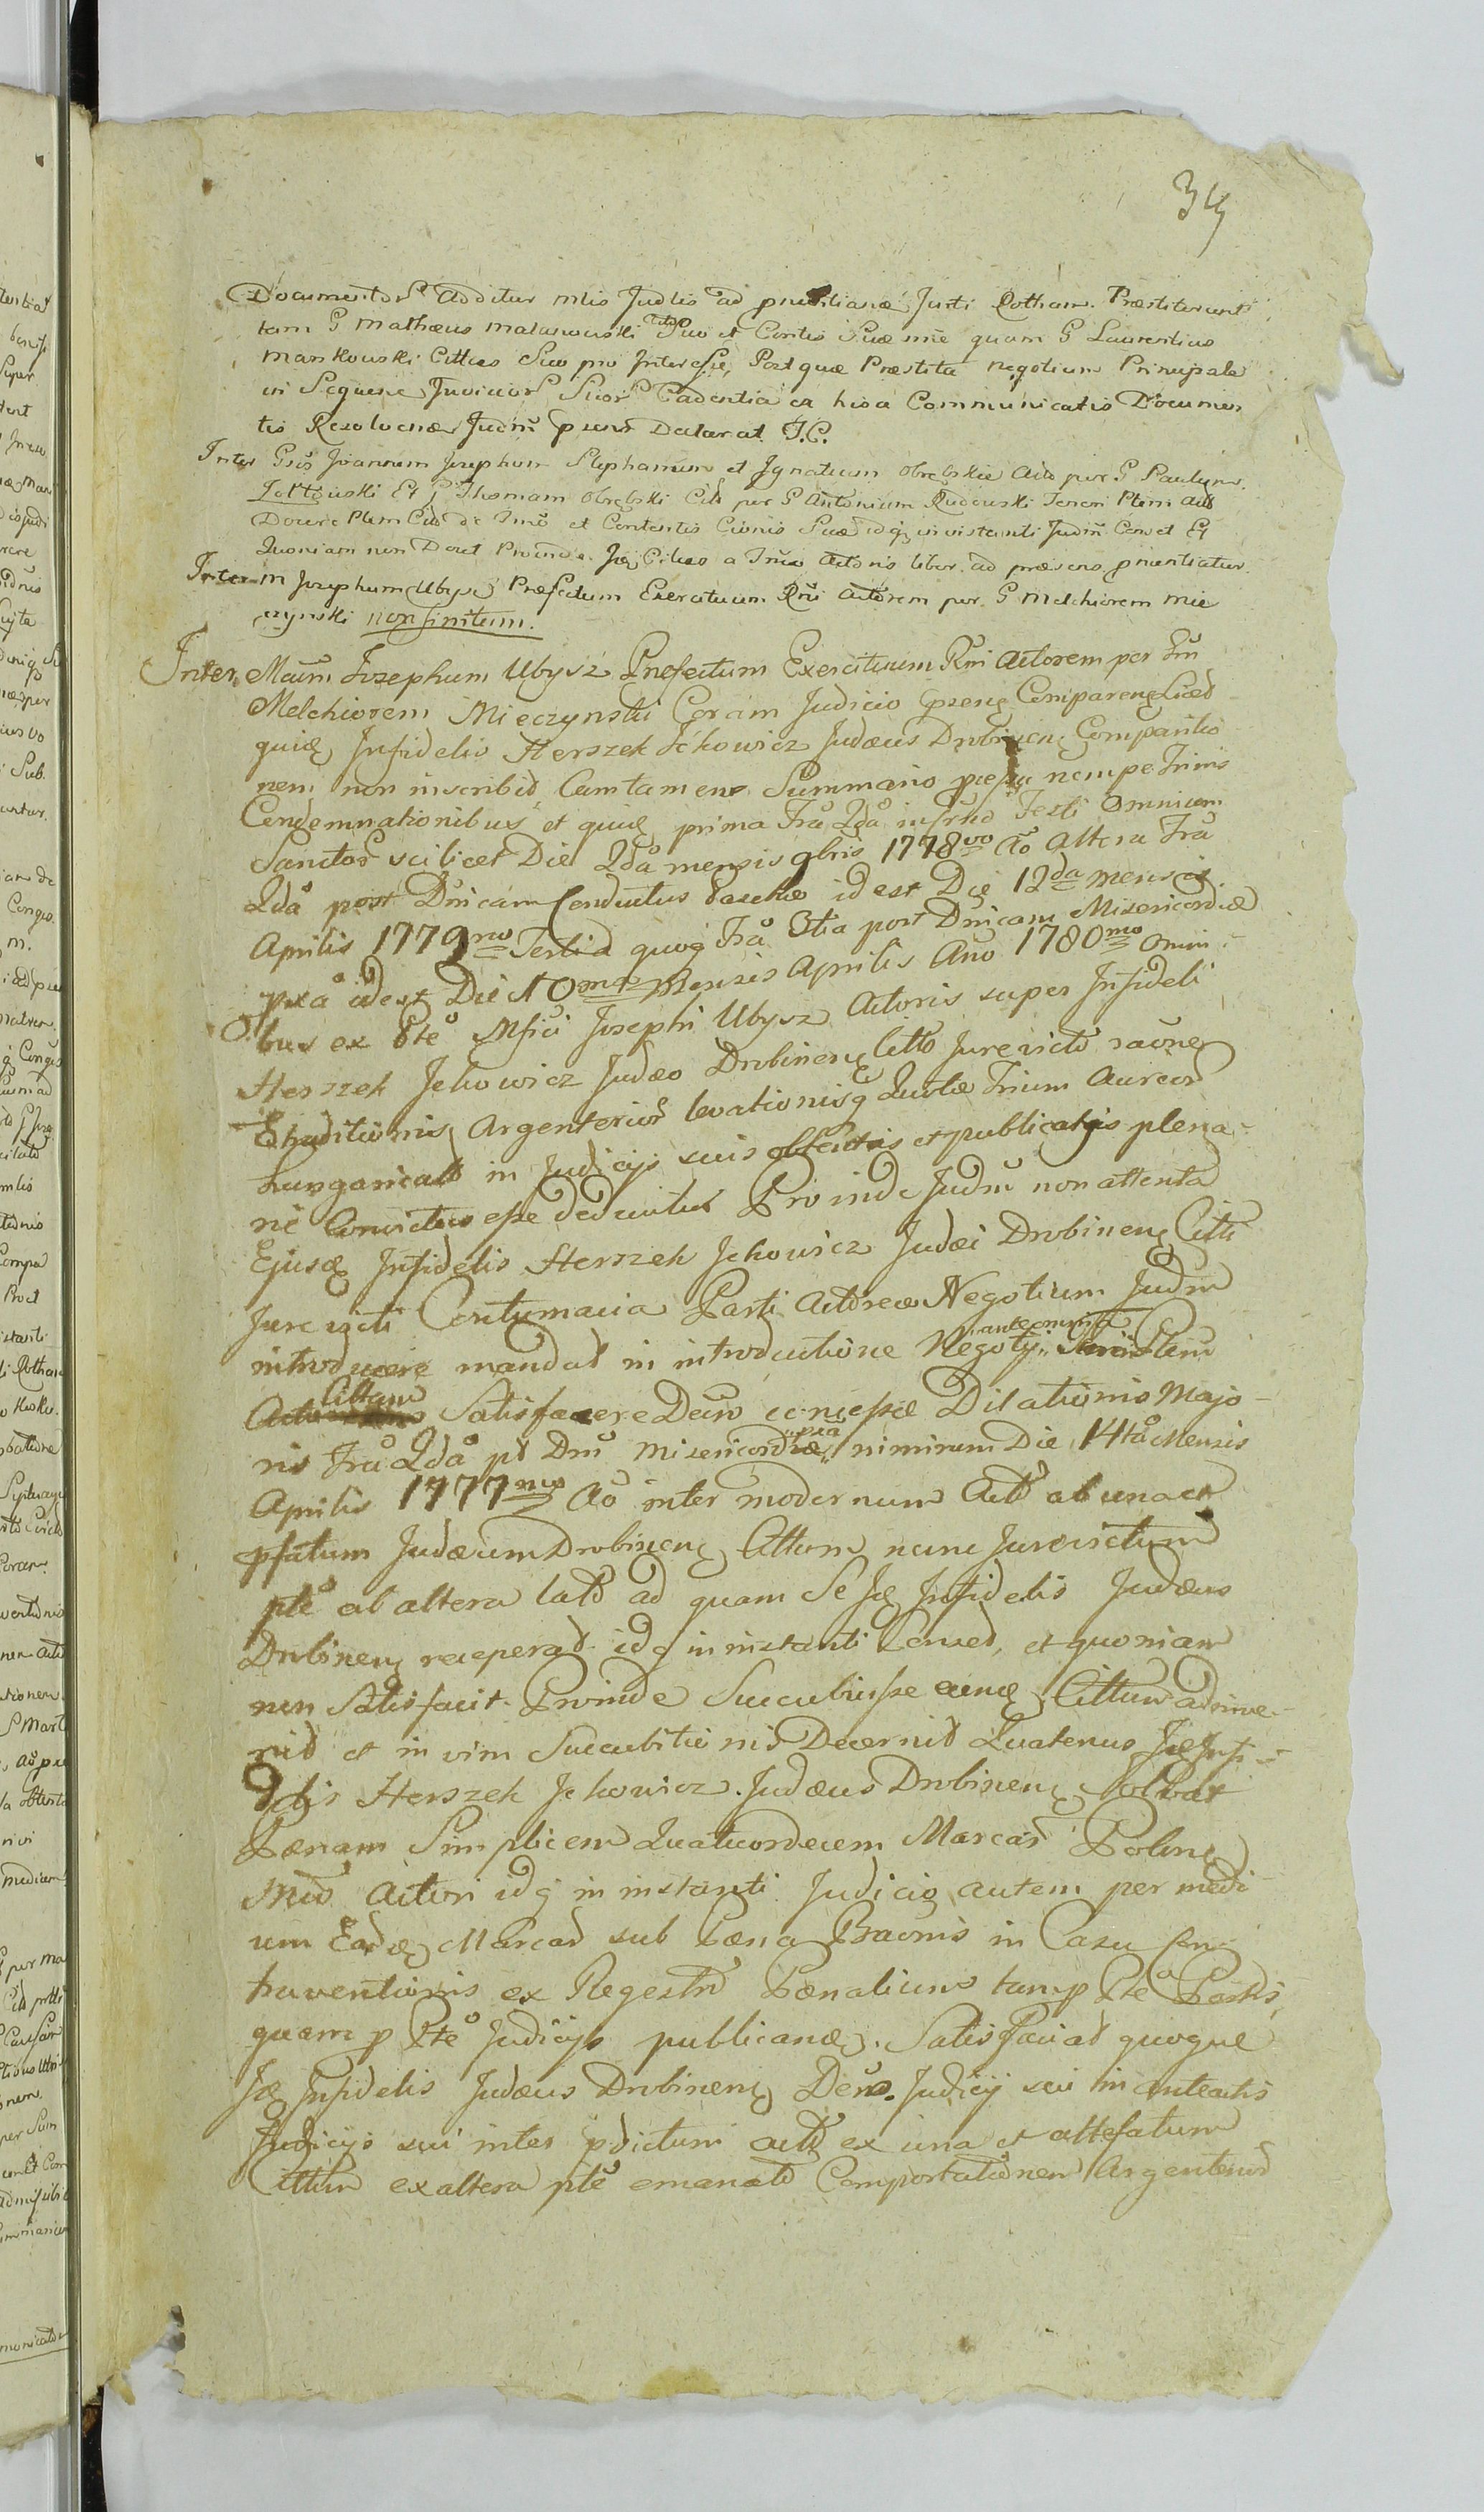 34
Documentor additur mtis Judtis ad pnuntianae Justi Rotham. Praestiterunt
tam G Mathaeus Malanowski Citto Suo et Contis Suae mie quam G Laurentius
Mankowski Cittus Suo pro Interesse, Post quae Praestita negotium Principale
in Sequene Juricior Suor Cadentia ex hisce Communicatis Documen
tis Resolvenae Judm puns Datarat. J.C.
Inter Gsos Joannem Josephum Stephanum et Ignatium Obrębskie Actd per G Paulum
Zołtowski Et G Thomam Obrębski Citd per G Antonium Rudowski Teneri Ptem Actd
Docere Ptem Citd de Imo et Contentis Cionis Suae idq in instanti Judm Censet Et
Quoniam non Docet Proinde Ję Cittus a Imo Actoris liber. ad praesens pnuntiatur.
Inter M Josephum Ubysz Praefectum Exercituum Rni Actorem per G Melchiorem Mie
czynski non finitum.
Inter Mcum Josephum Ubysz Prefectum Exercituum Rni Actorem per Gm
Melchiorem Mieczynski Coram Judicio psenę Comparenę Liced
quidę Infidelis Herszek Jckowicz Judaeus Drobinenę Comparitio
nem non inscribid Cum tamen Summario pcessu nempe Trinis
Condemnationibus et quidę prima Fra 2da in Festi Omnium
Sanctor scilicet Die 2da mensis 9bris 1778vo Ao altera Fra
2da post Dnicam Conductus Paschae id est Die 12da mensis
Aprilis 1779no Tertia quoq Fra 3tia post Dnicam Misericordiae
pxa id est Die 10ma Mensis Aprilis Ano 1780mo omni-
bus ex Pte Mfici Josephi Ubysz Actoris super Infideli
Herszek Jckowicz Judaeo Drobinenę Citto Jurevicto raone
Extraditionis Argenterior levationisq Quotae Trium Aureor
hungaricald in Judicijs suis obtentis et publicatis plena-
rie Convictus esse deducitur Proinde Judm non attenta
Ejusdę Infidelis Herszek Jckowicz Judaei Drobinenę Citti
Jurevicti Contumacia Parti Actoreae Negotium Judm
introducere mandat in introductione Negotij anteomnia Ptem
Cittam Satisfacere Decro concessae Dilationis Majo-
ris Fra 2da pt Dm Misericordiae pxa nimirum Die 14ta Mensis
Aprilis 1777mo Ao inter modernum Actd ab una et
pfatum Judaeum Drobinenę Cittum nunc Jurevictum
pte ab altera latd ad quam Se Ję Infidelis Judaeus
Drobinenę receperad idq in instanti Censed, et quoniam
non Satisfacit Proinde Succubuisse eundę Cittum adinve-
nid et in vim Succubitionis Decernid Quatenus Ję Infi-
delis Herszek Jckowicz Judaeus Drobinenę Solvat
Paenam Simplicem Quatuordecem Marcas Polnę
Mco Actori idq in instanti Judicio autem per medi
um Eadę Marcad sub Paena Baonis in Casu Con-
traventionis ex Regestro Paenalium tam p Pte Partis
quam p Pte Judicijs publicanę. Satisfaciad quoque
Ję Infidelis Judaeus Drobinenę Decro. Judicij sui in anteactis
Judicijs sui inter pdictum actd ex una et attefatum
Cittum ex altera pte emanato Comportationem Argenterior